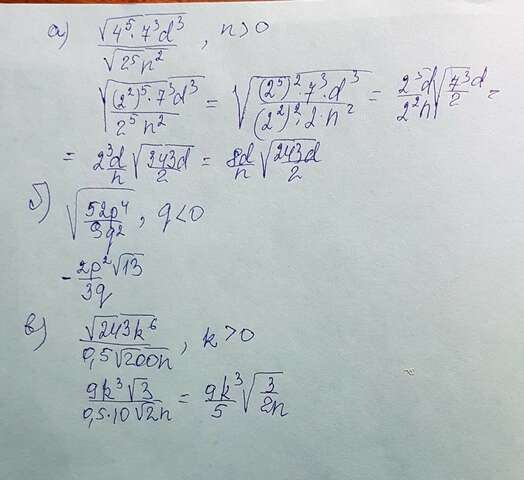 а) √(4⁵·7³d³) / √(2⁵n²), n>0
√((2²)⁵·7³d³ / 2⁵n²) = √((2⁵)²·7³·d³ / (2²)²·2·n²) = 2⁵d/2²n √(7³d/2) =
= 2³d/n √(343d/2) = 8d/n √(243d/2)
б) √(52p⁴/9q²), q<0
- 2p²√13 / 3q
в) √(243k⁶) / 0,5√(200n), k>0
9k³√3 / 0,5·10√(2n) = 9k³/5 √(3/2n)